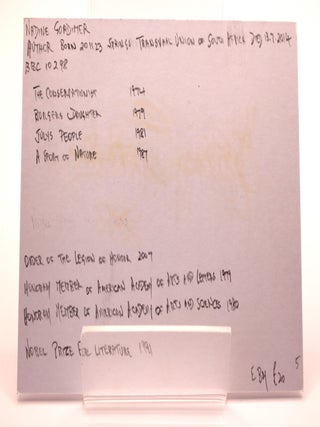 NADINE GORDIMER
AUTHOR BORN 20.11.23 SPRINGS. TRANSVAAL UNION OF SOUTH AFRICA DIED 13.7.2014
BBC 10.2.98
THE CONSERVATIONIST 1974
BURGERS DAUGHTER 1979
JULYS PEOPLE 1981
A SPORT OF NATURE 1987
ORDER OF THE LEGION OF HONOUR 2007
HONORARY MEMBER OF AMERICAN ACADEMY OF ARTS AND LETTERS 1979
HONORARY MEMBER OF AMERICAN ACADEMY OF ARTS AND SCIENCES 1980
NOBEL PRIZE FOR LITERATURE 1991
5
£20